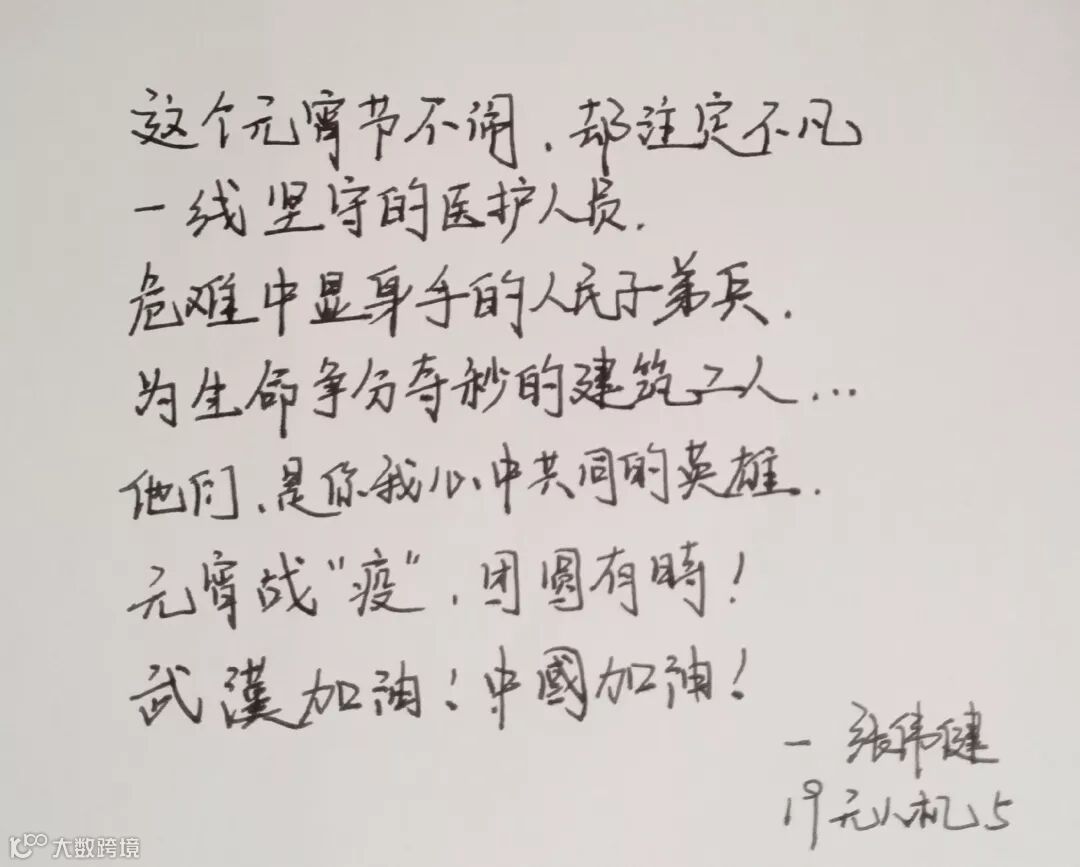 这个元宵节不闹,却注定不凡
一线坚守的医护人员.
危难中显身手的人民子弟兵.
为生命争分夺秒的建筑工人...
他们、是你我心中共同的英雄.
元宵战"疫",团圆有時!
武漢加油!中國加油!
一张伟健
19无人机5
大数跨境